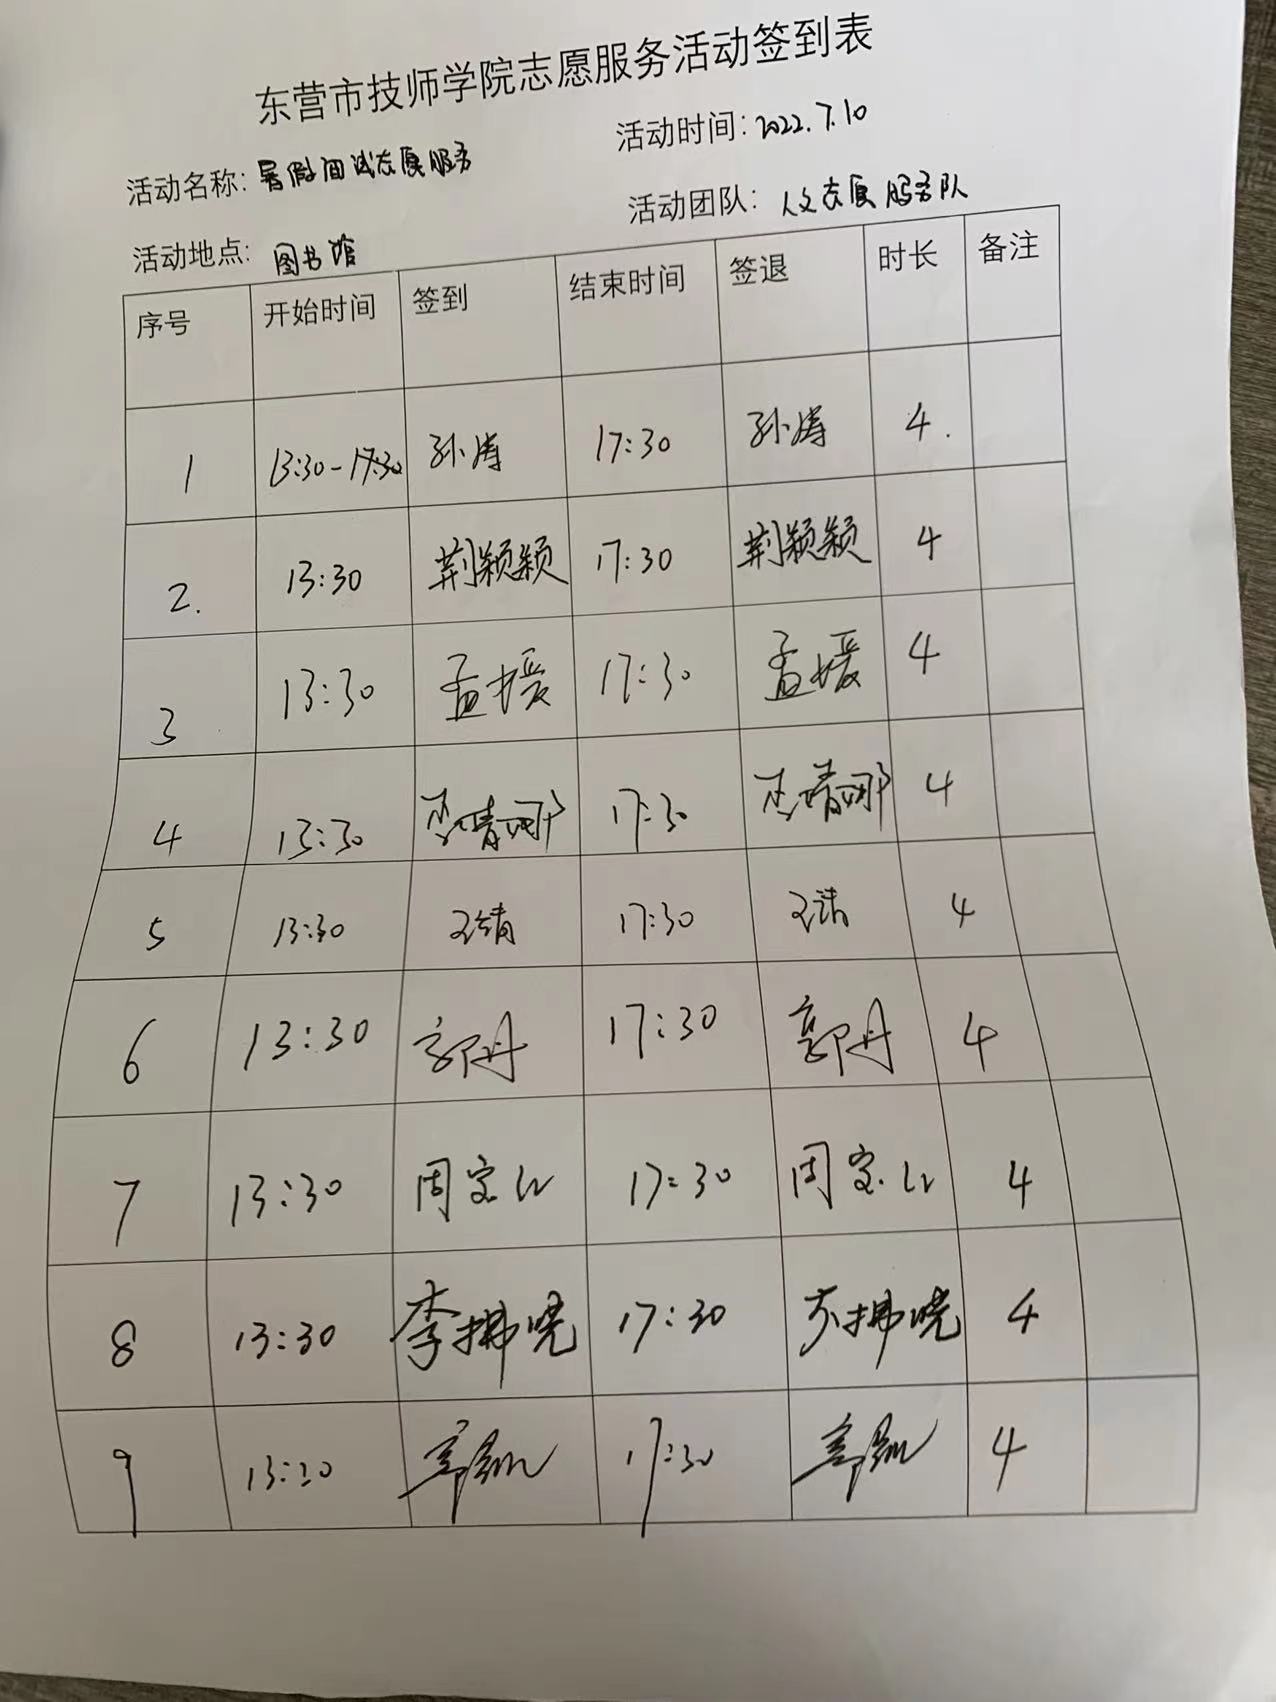 东营市技师学院志愿服务活动签到表
活动名称: 暑假面试志愿服务 活动时间: 2022.7.10
活动地点: 图书馆 活动团队: 人文志愿服务队
序号 开始时间 签到 结束时间 签退 时长 备注
1 13:30-17:30 孙涛 17:30 孙涛 4.
2. 13:30 荆颖颖 17:30 荆颖颖 4
3 13:30 孟媛 17:30 孟媛 4
4 13:30 17:30 4
5 13:30 17:30 4
6 13:30 郭丹 17:30 郭丹 4
7 13:30 周宝红 17:30 周宝红 4
8 13:30 李拂晓 17:30 李拂晓 4
9 13:30 17:30 4